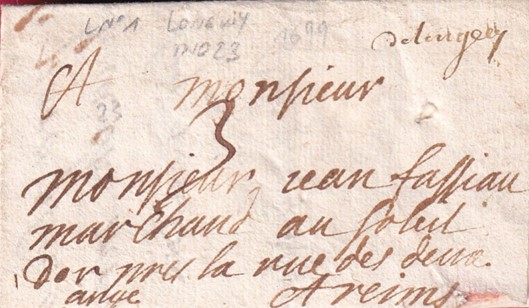 LN°1 Longwy 1699
IND23
delurgey
A monsieur
23
3
monsieur jean fassiau
marchand au soleil
Dor pres la rue des deux
ange Areims